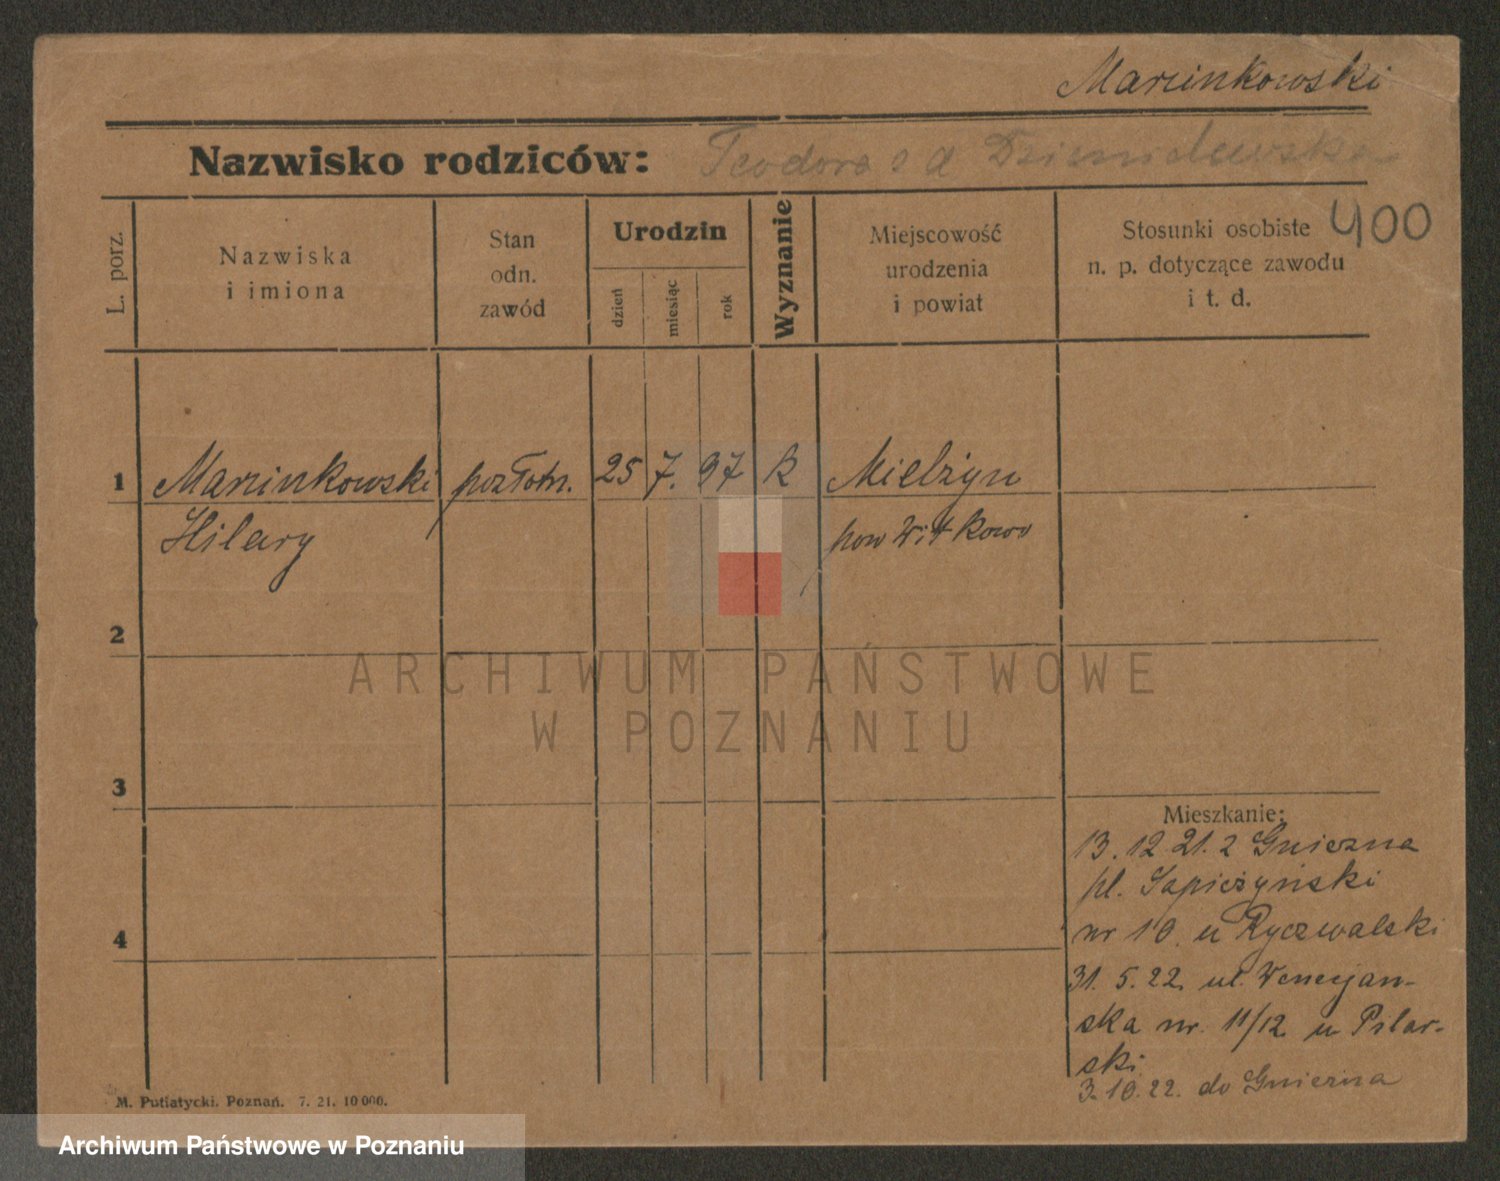 Marcinkowski
Nazwisko rodziców: Teodora
400
L. porz.
Nazwiska
i imiona
Stan
odn.
zawód
Urodzin
dzień
miesiąc
rok
Wyznanie
Miejscowość
urodzenia
i powiat
Stosunki osobiste
n. p. dotyczące zawodu
i t. d.
1 Marcinkowski pozłotn. 25 7. 97 K Mielżyn
Hilary pow Witkowo
2
ARCHIWUM PAŃSTWOWE
W POZNANIU
3
Mieszkanie:
13. 12 21. z Gniezna
pl. Sapieżyński
4 nr 10 u Ryczwalski
31. 5. 22. ul. Wenecjan-
ska nr. 11/12 u Pilar-
ski
3. 10. 22. do Gniezna
M. Putiatycki. Poznań. 7. 21. 10 000.
Archiwum Państwowe w Poznaniu